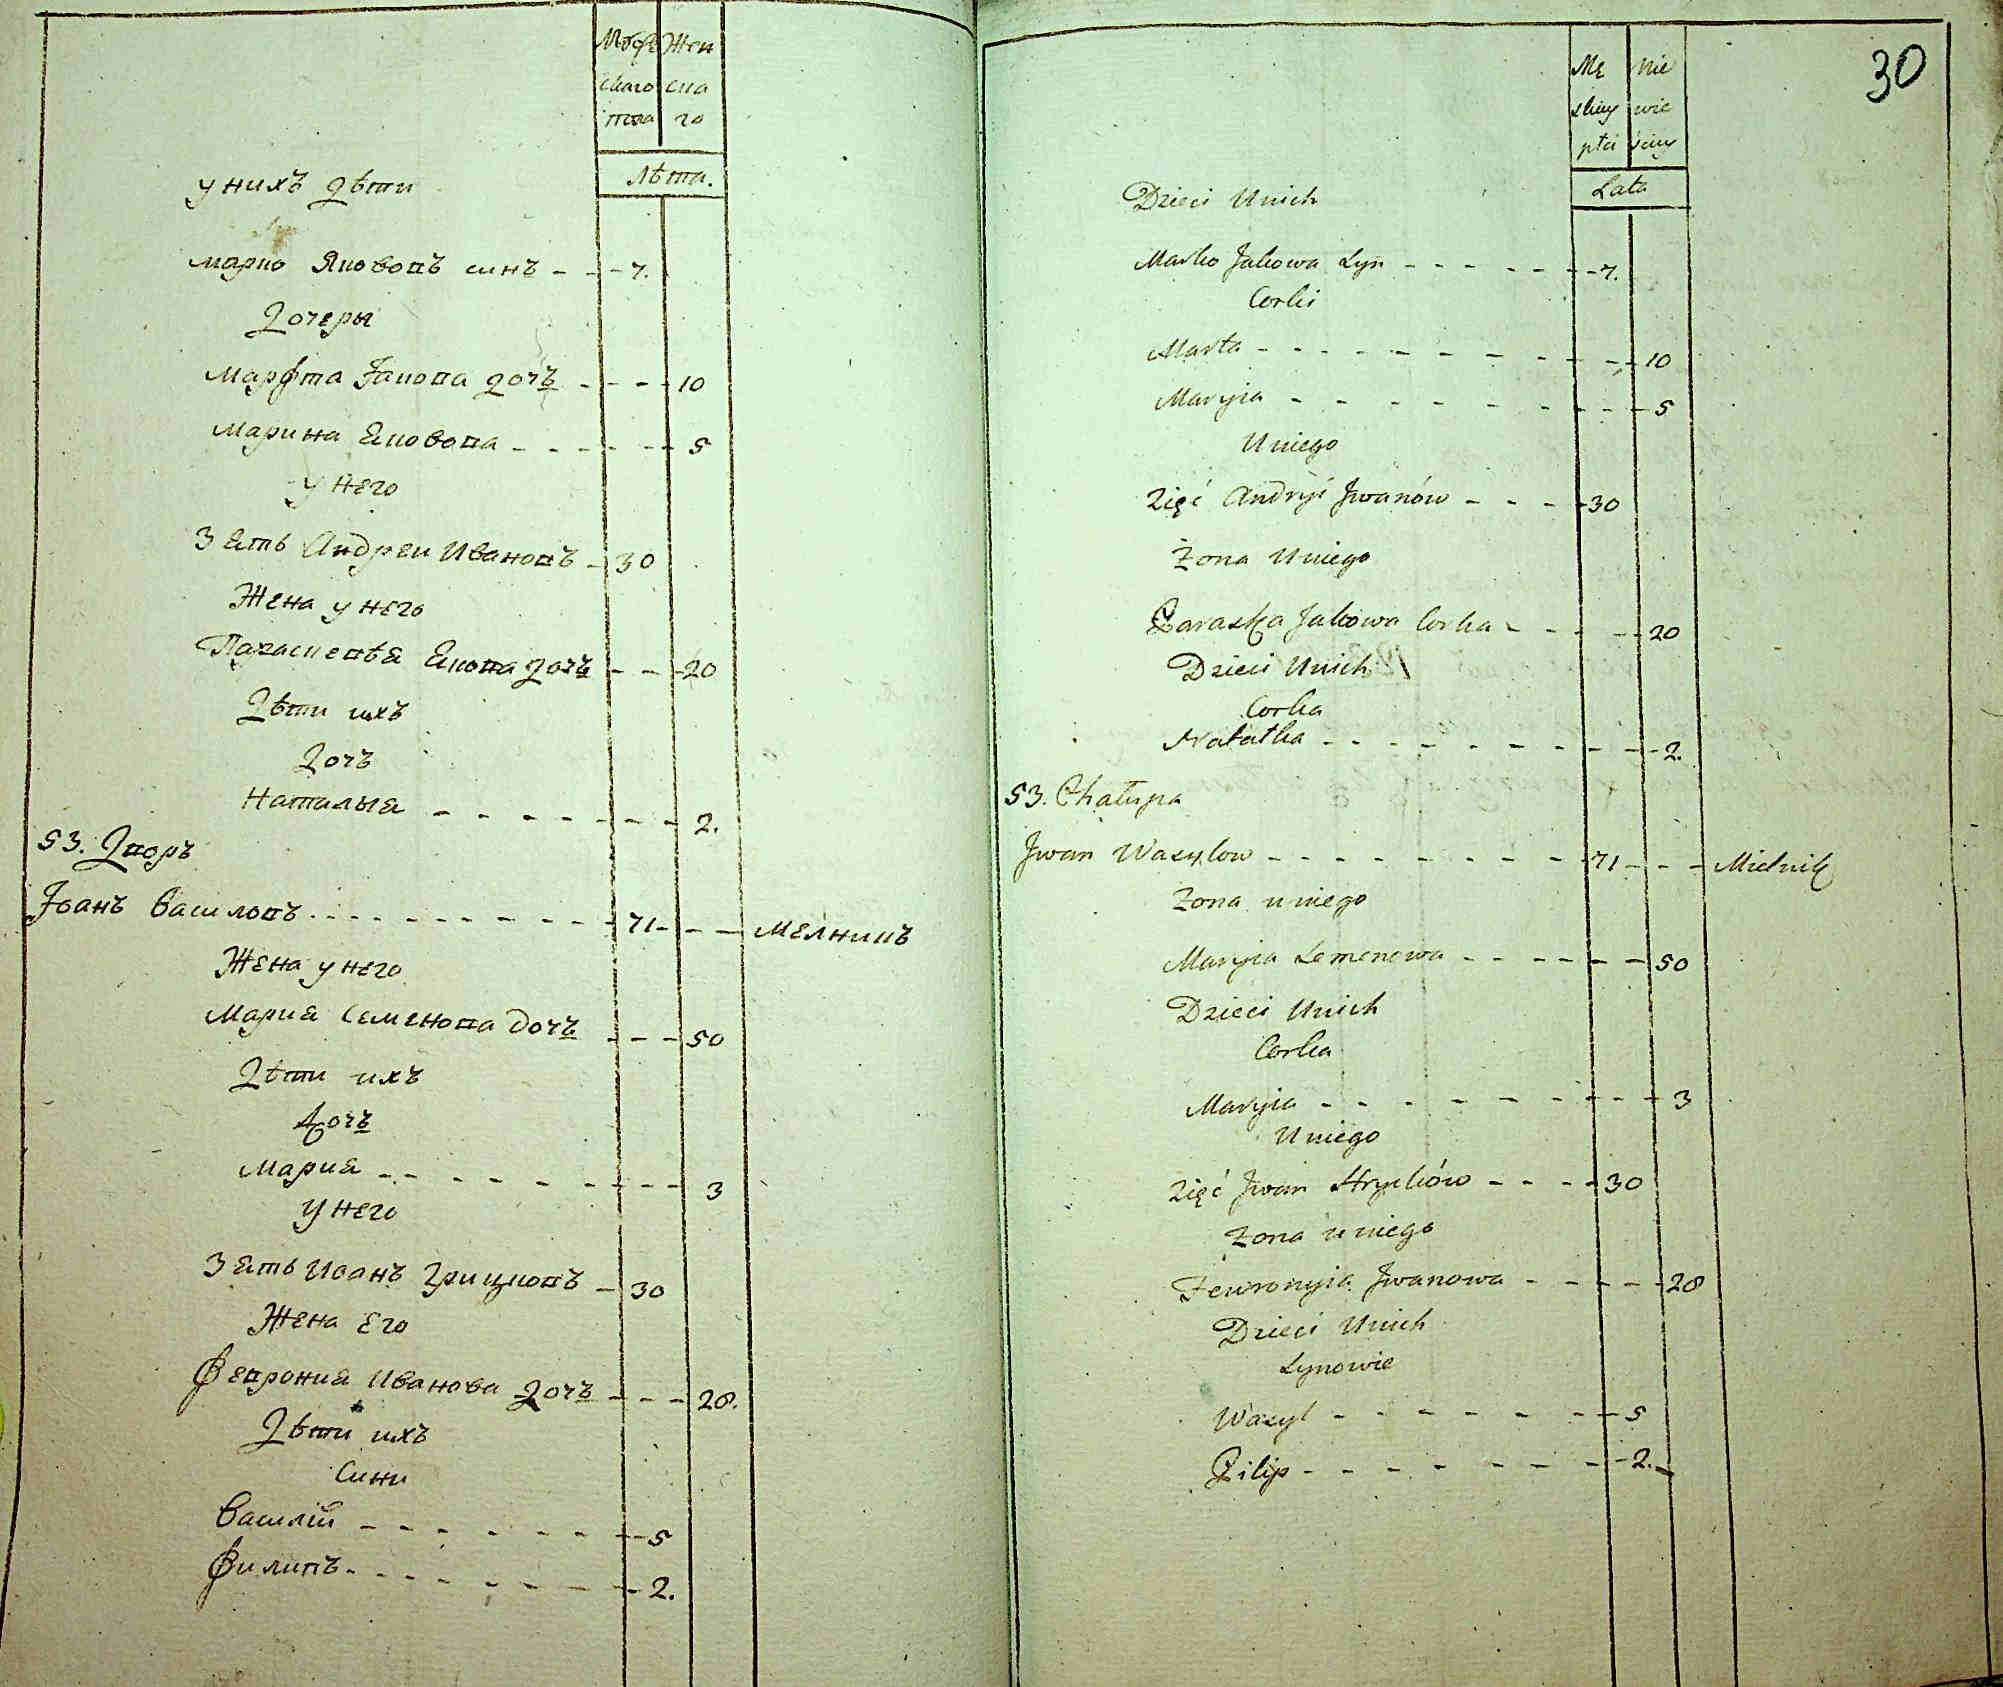 Мужескаго пола Женскаго
Лѣта.
у нихъ дѣти
Марко Якововъ синъ - - - 7.
Дочеры
Марфта Іакова дочъ - - - - 10
Марина Яковова - - - - - - 5
у него
Зять Андреи Ивановъ - 30
Жена у него
Параскевѣя Якова дочъ - - - 20
Дѣти ихъ
Дочъ
Наталыя - - - - - - - - 2.
53. Дворъ
Іванъ Василовъ - - - - - - - - - 71 - - - Мелникъ
Жена у него
Мария Семенова дочъ - - - 50
Дѣти ихъ
Дочъ
Мария - - - - - - - - - 3
У него
Зять Иванъ Грицковъ - 30
Жена Его
Феврония Иванова дочъ - - - 28.
Дѣти ихъ
Сини
Василїй - - - - - - - - 5
Филипъ - - - - - - - - 2.
30
Męskiey płci Niewieściey
Lata
Dzieci Unich
Marko Jakowa Syn - - - - - - - 7.
Corki
Marta - - - - - - - - - - - 10
Maryia - - - - - - - - - - 5
Uniego
Zięć Andryi Jwanów - - - - 30
Żona Uniego
Paraska Jakowa Corka - - - - - 20
Dzieci Unich
Corka
Natalka - - - - - - - - - - 2.
53. Chałupa
Jwan Wasylow - - - - - - - - - 71 - - - Mielnik
Żona uniego
Maryia Semenowa - - - - - - 50
Dzieci Unich
Corka
Maryia - - - - - - - - - 3
Uniego
Zięć Jwan Hryckow - - - - 30
Żona uniego
Fewronyia Jwanowa - - - - - 28
Dzieci Unich
Synowie
Wasyl - - - - - - - - 5
Filip - - - - - - - - 2.